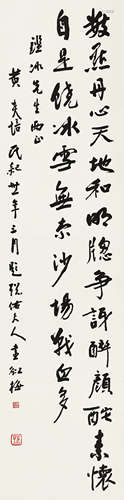 数点丹心天地和明窗争讶醉颜酡素怀
自是饶冰雪无奈沙场战血多
冰先生两正
黄炎培民纪卅年三月题张佑夫人画红梅